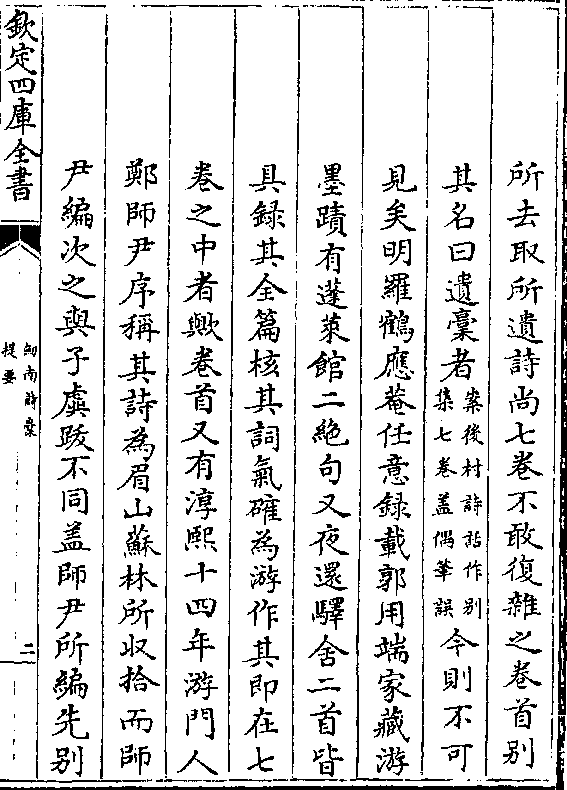 所去取所遺詩尚七卷不敢復雜之卷首别
其名曰遺稾者案後村詩話作别集七卷盖偶筆誤今則不可
見矣明羅鶴應菴任意録載郭用端家藏游
墨蹟有蓬萊館二絶句又夜還驛舍二首皆
具録其全篇核其詞氣確為游作其即在七
卷之中者歟卷首又有淳熙十四年游門人
鄭師尹序稱其詩為眉山蘇林所収拾而師
尹編次之與子虡跋不同盖師尹所編先别
欽定四庫全書
劒南詩稾
提要
二